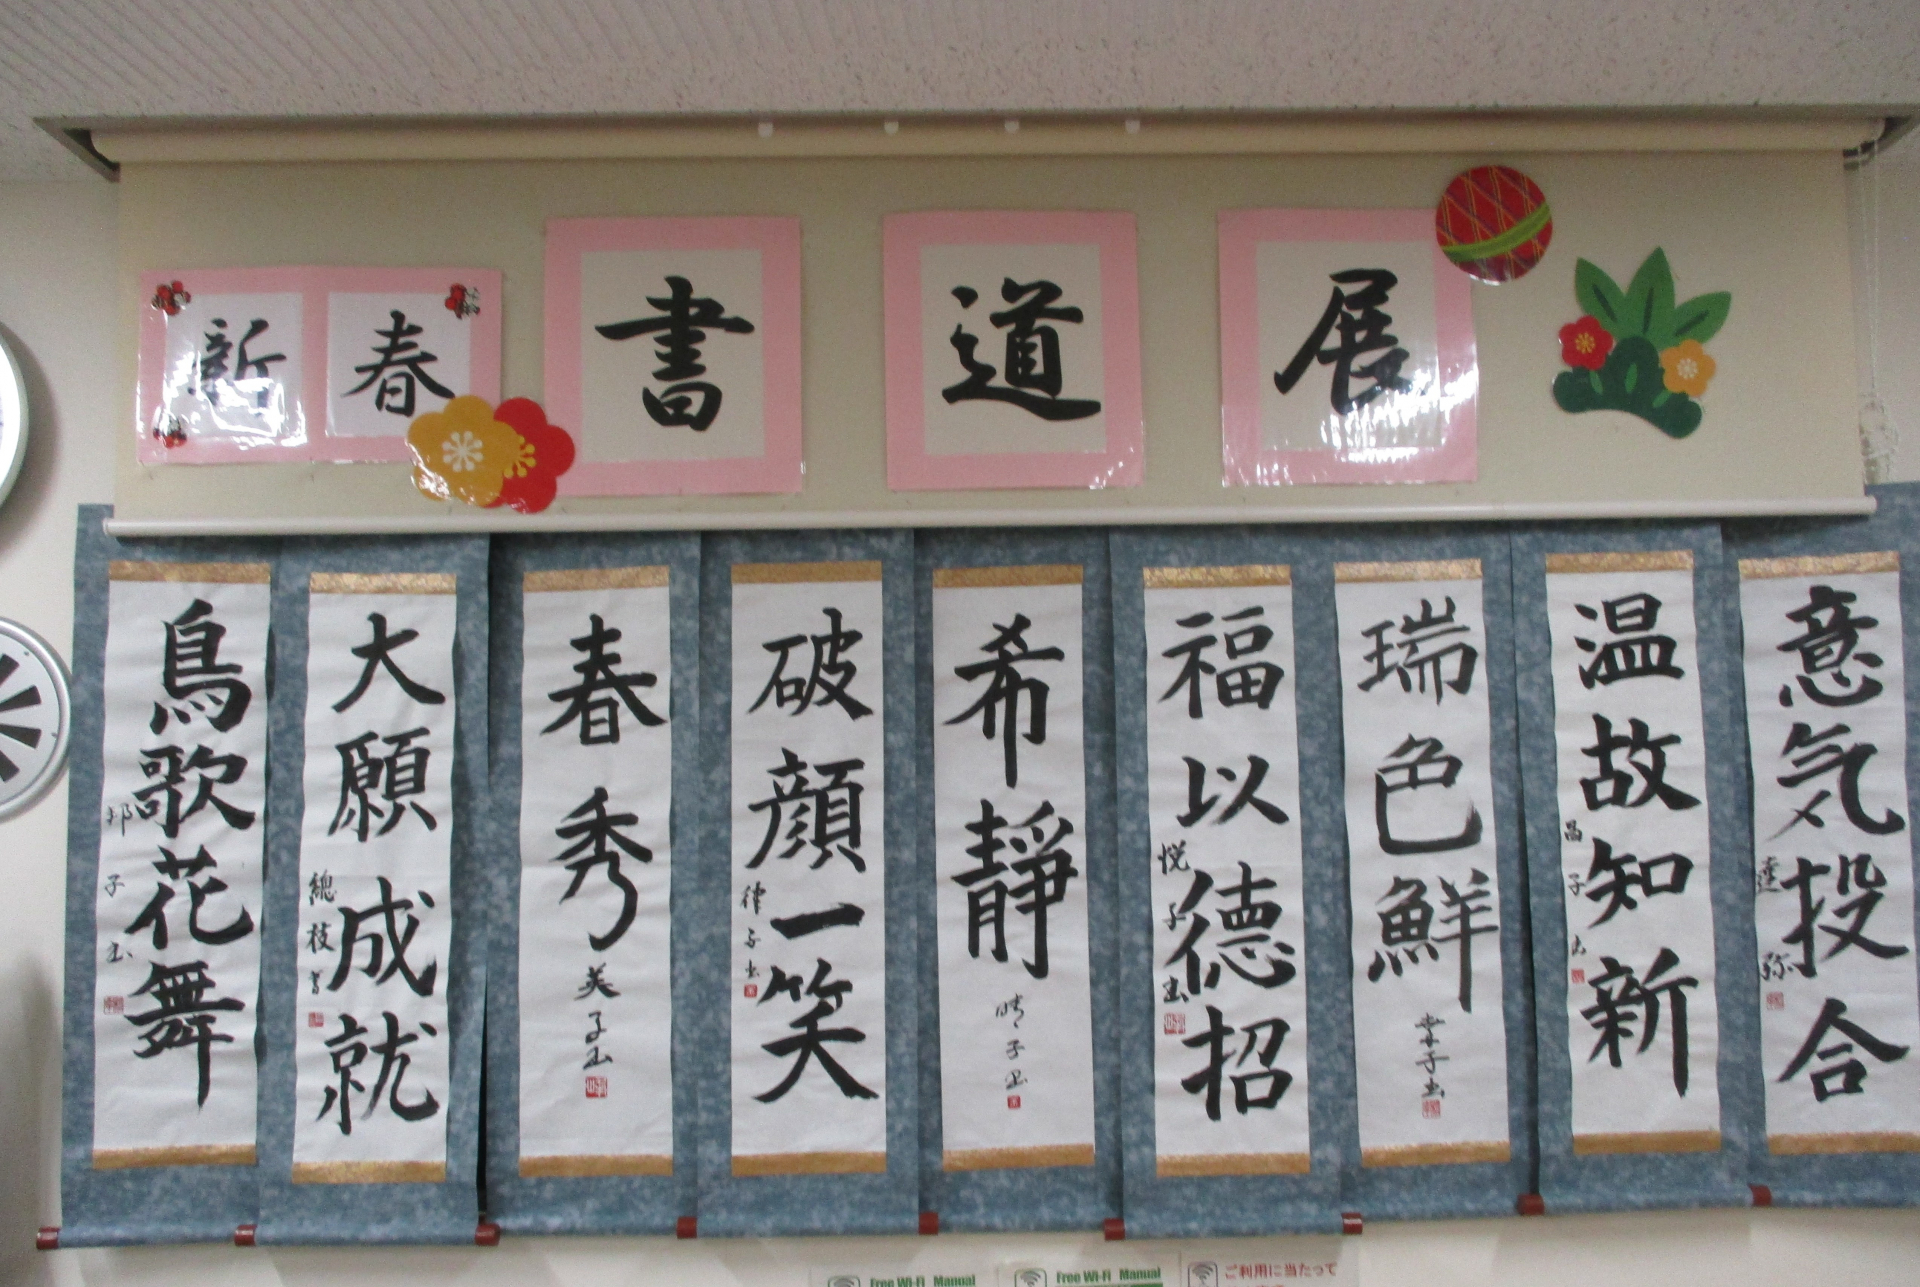 新春 書道展
鳥歌花舞
邦子書
大願成就
總枝書
春秀
美子書
破顔一笑
律子書
希静
晴子書
福以徳招
悦子書
瑞色鮮
幸子書
温故知新
昌子書
意気投合
達弥
Free Wi-Fi Manual
Free Wi-Fi Manual
ご利用に当たって